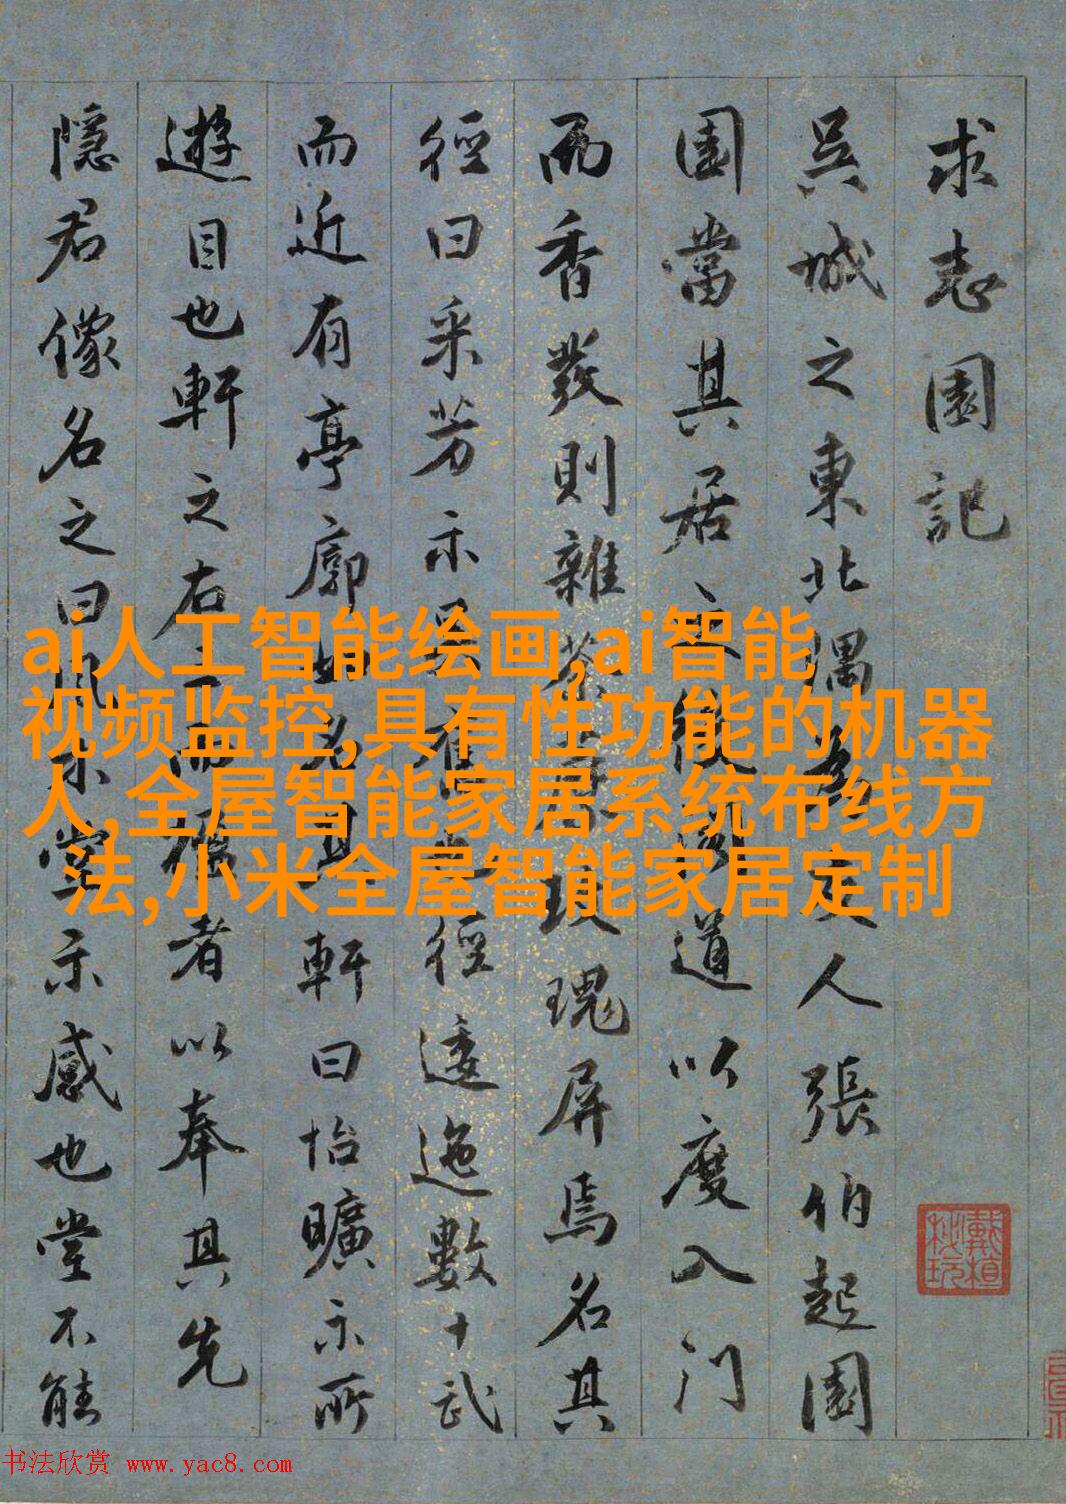 求志園記
吳城之東北隅為文人張伯起園
園當其居之後閣道以度入門
而香發則雜荼玫瑰屏焉名其
徑曰采芳示吳舊也徑逶迤數十武
而近有亭廓如名其軒曰怡曠示所
遊目也軒之右三而楹者以奉其先
隱君像名之曰風木堂示感也堂不能
ai人工智能绘画,ai智能
视频监控,具有性功能的机器
人,全屋智能家居系统布线方
法,小米全屋智能家居定制
书法欣赏 www.yac8.com